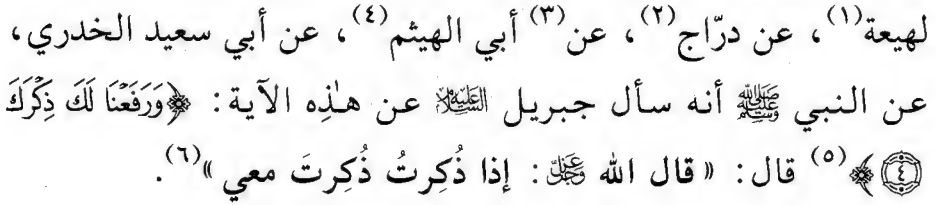 لهيعة(١)، عن درّاج(٢)، عن(٣) أبي الهيثم(٤)، عن أبي سعيد الخدري،
عن النبي ﷺ أنه سأل جبريل العَلَيْهِ السَّلَام عن هٰذِه الآية: ﴿وَرَفَعْنَا لَكَ ذِكْرَكَ
٤﴾(٥) قال: «قال الله عَزَّ وَجَلَّ: إذا ذُكِرتُ ذُكِرتَ معي»(٦).